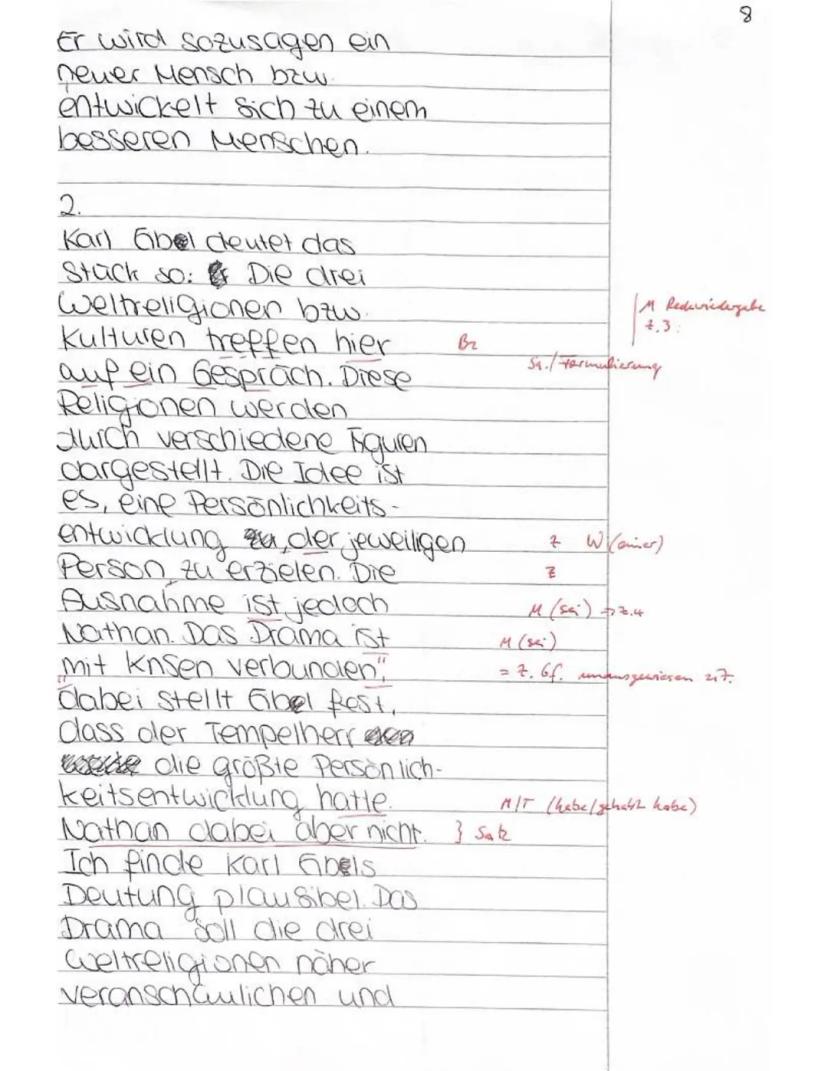 8
Er wird sozusagen ein
neuer Mensch bzw.
entwickelt sich zu einem
besseren Menschen.
2.
Karl Eibel deutet das
Stück so: Die drei
Weltreligionen bzw.
Kulturen treffen hier Bz
auf ein Gespräch. Diese
Religionen werden
durch verschiedene Figuren
dargestellt. Die Idee ist
es, eine Persönlichkeits-
entwicklung, der jeweiligen Z W (einer)
Person, zu erzielen. Die Z
Ausnahme ist jedoch M (sei) => Z.4
Nathan. Das Drama ist M (sei)
"mit Krisen verbunden", = Z. Gf. unausgewiesen zit.
dabei stellt Eibel fest,
dass der Tempelherr
die größte Persönlich-
keitsentwicklung hatte. M/T (habe/gehabt habe)
Nathan dabei aber nicht. } Satz
Ich finde Karl Eibels
Deutung plausibel. Das
Drama soll die drei
Weltreligionen näher
veranschaulichen und
M Redewiedergabe
Z.3.
Sa./Formulierung